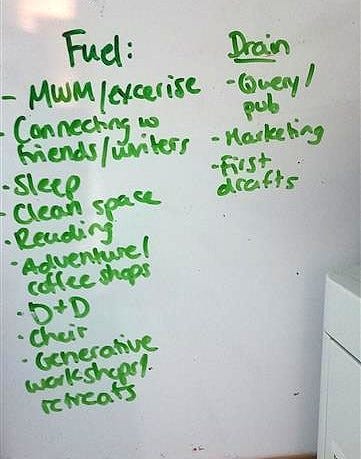 Fuel:
- MWM/excerise
- Connecting w
friends/writers
- Sleep
- Clean space
- Reading
- Adventure/
coffee shops
- D+D
- Choir
- Generative
workshops/
retreats
Drain
- Query/
pub
- Marketing
- First
drafts